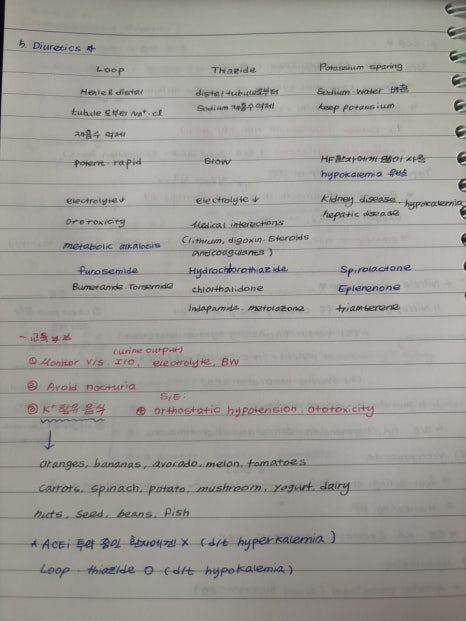 5. Diuretics ☆
Loop Thiazide Potassium sparing
Henle & distal distal tubule로부터 Sodium·water 배출
tubule 로부터 Na+·Cl Sodium 재흡수 억제 keep potassium
재흡수 억제
potent·rapid Slow HF환자에게 많이 사용
hypokalemia
electrolyte↓ electrolyte ↓ Kidney disease·hypokalemia
ototoxicity Medical interections hepatic disease
metabolic alkalosis (lithium, digoxin, steroids
anticoagulants)
furosemide Hydrochlorothiazide Spirolactone
Bumetanide·Torsemide chlorthalidone Eplerenone
Indapamide·metolazone triamterene
- 교육 ☆☆
(urine output)
① Monitor V/S. I/O, electrolyte, BW
② Avoid nocturia
S/E:
③ K+ 함유 음식 ④ orthostatic hypotension. ototoxicity
↓
oranges, bananas, avocado, melon, tomatoes
carrots, spinach, potato, mushroom, yogurt, dairy
nuts, seed, beans, fish
* ACEi 투약 중인 환자에겐 X (d/t hyperkalemia)
Loop·thiazide O (d/t hypokalemia)